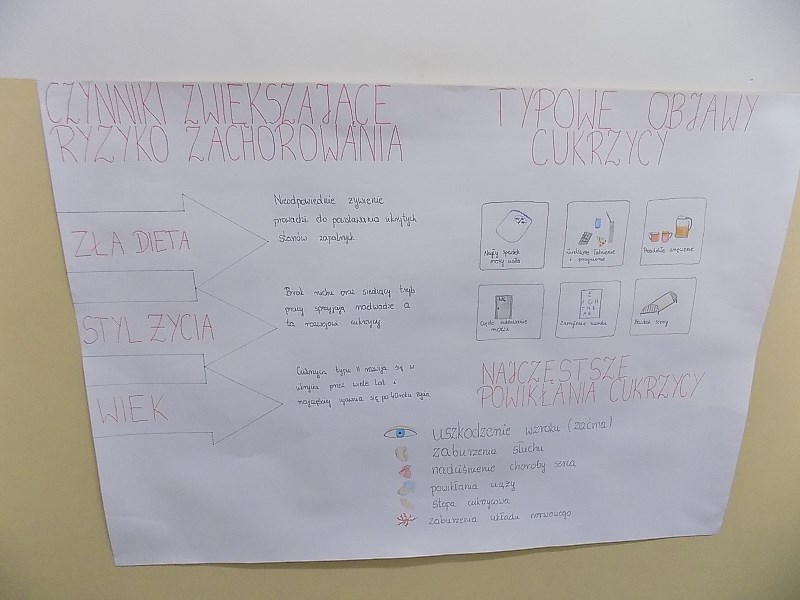 CZYNNIKI ZWIĘKSZAJĄCE
RYZYKO ZACHOROWANIA
ZŁA DIETA
Nieodpowiednie żywienie
prowadzi do powstawania ukrytych
stanów zapalnych
STYL ŻYCIA
Brak ruchu oraz siedzący tryb
pracy sprzyjają nadwadze a
ta rozwojowi cukrzycy
WIEK
Cukrzyca typu II rozwija się w
ukryciu przez wiele lat i
najczęściej ujawnia się po 40 roku życia
TYPOWE OBJAWY
CUKRZYCY
Nagły spadek
masy ciała
i pragnienie
Częste oddawanie
moczu
Zaburzenia wzroku
NAJCZĘSTSZE
POWIKŁANIA CUKRZYCY
uszkodzenie wzroku (zaćma)
zaburzenia słuchu
nadciśnienie choroby serca
powikłania ciąży
stopa cukrzycowa
zaburzenia układu nerwowego